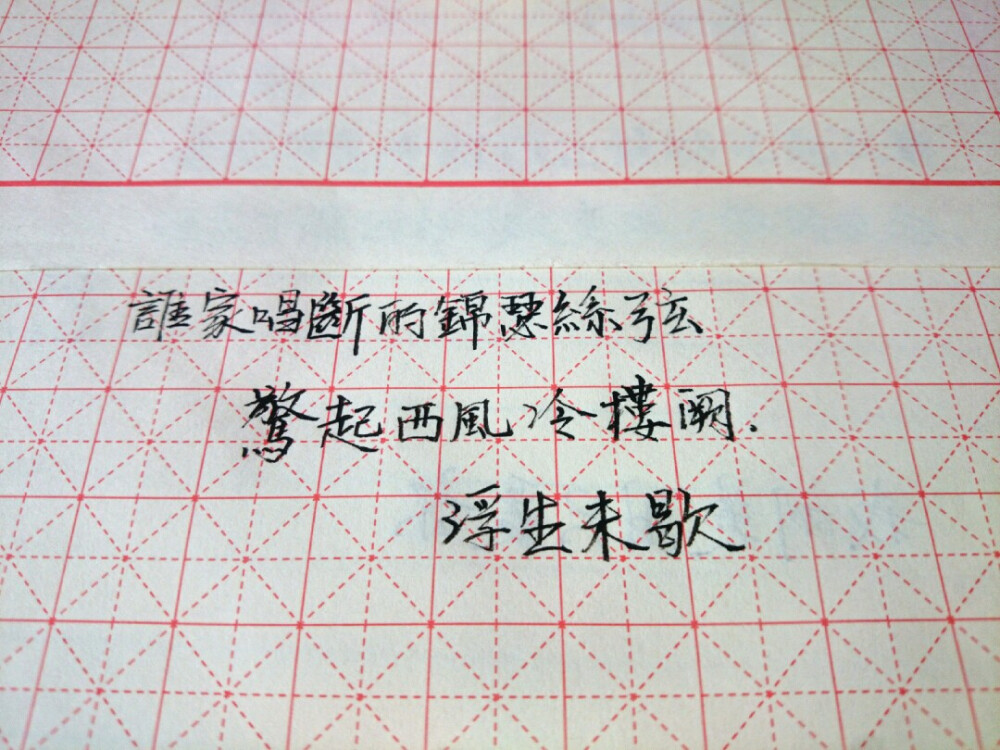 誰家唱斷的錦瑟絲弦
驚起西風冷樓闕.
浮生未歇